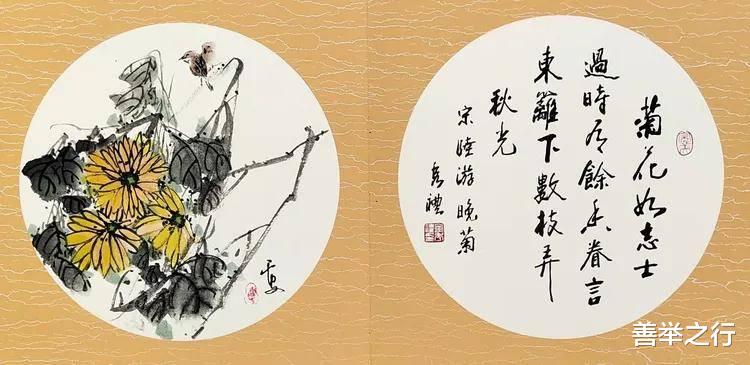 菊花如志士
過時有餘香眷言
東籬下數枝弄
秋光
宋陸游晚菊
善举之行